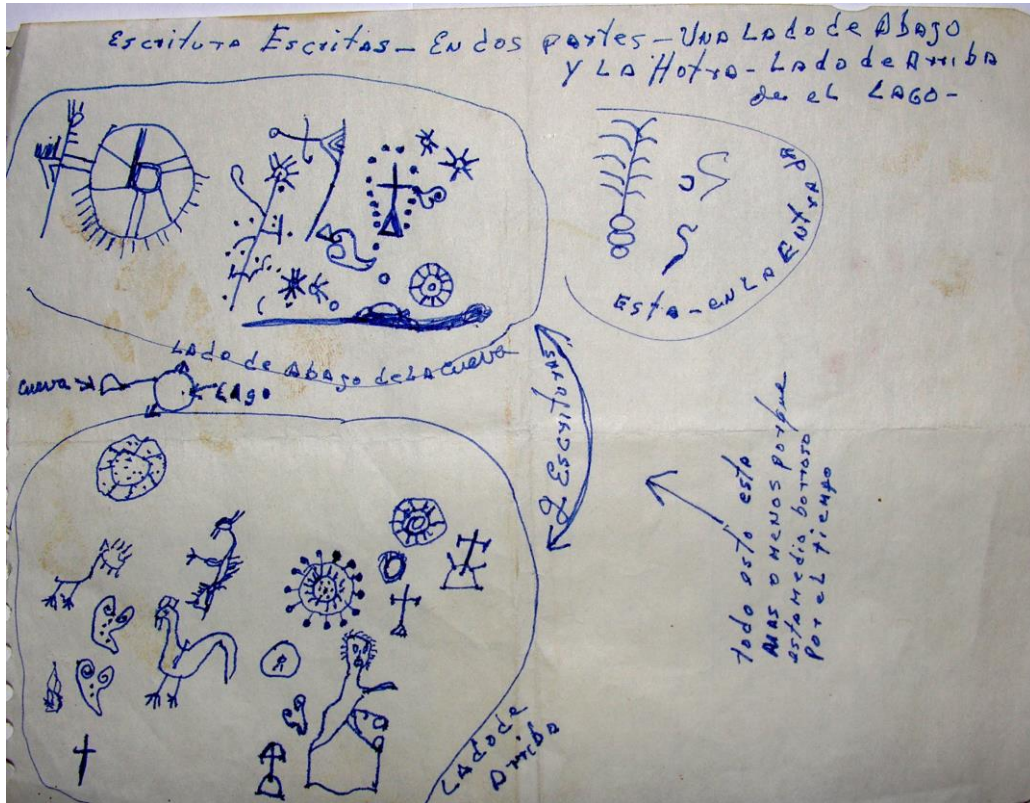 Escritura Escritas - En dos partes - Una Lado de Abajo
Y La Hotra - Lado de Arriba
de el LAGO -
Esta - en La Entrada
Lado de Abajo de La Cueva
Cueva
Lago
2 Escrituras
todo esto esta
mas o menos porque
esta medio borroso
por el tiempo
Lado de
Arriba